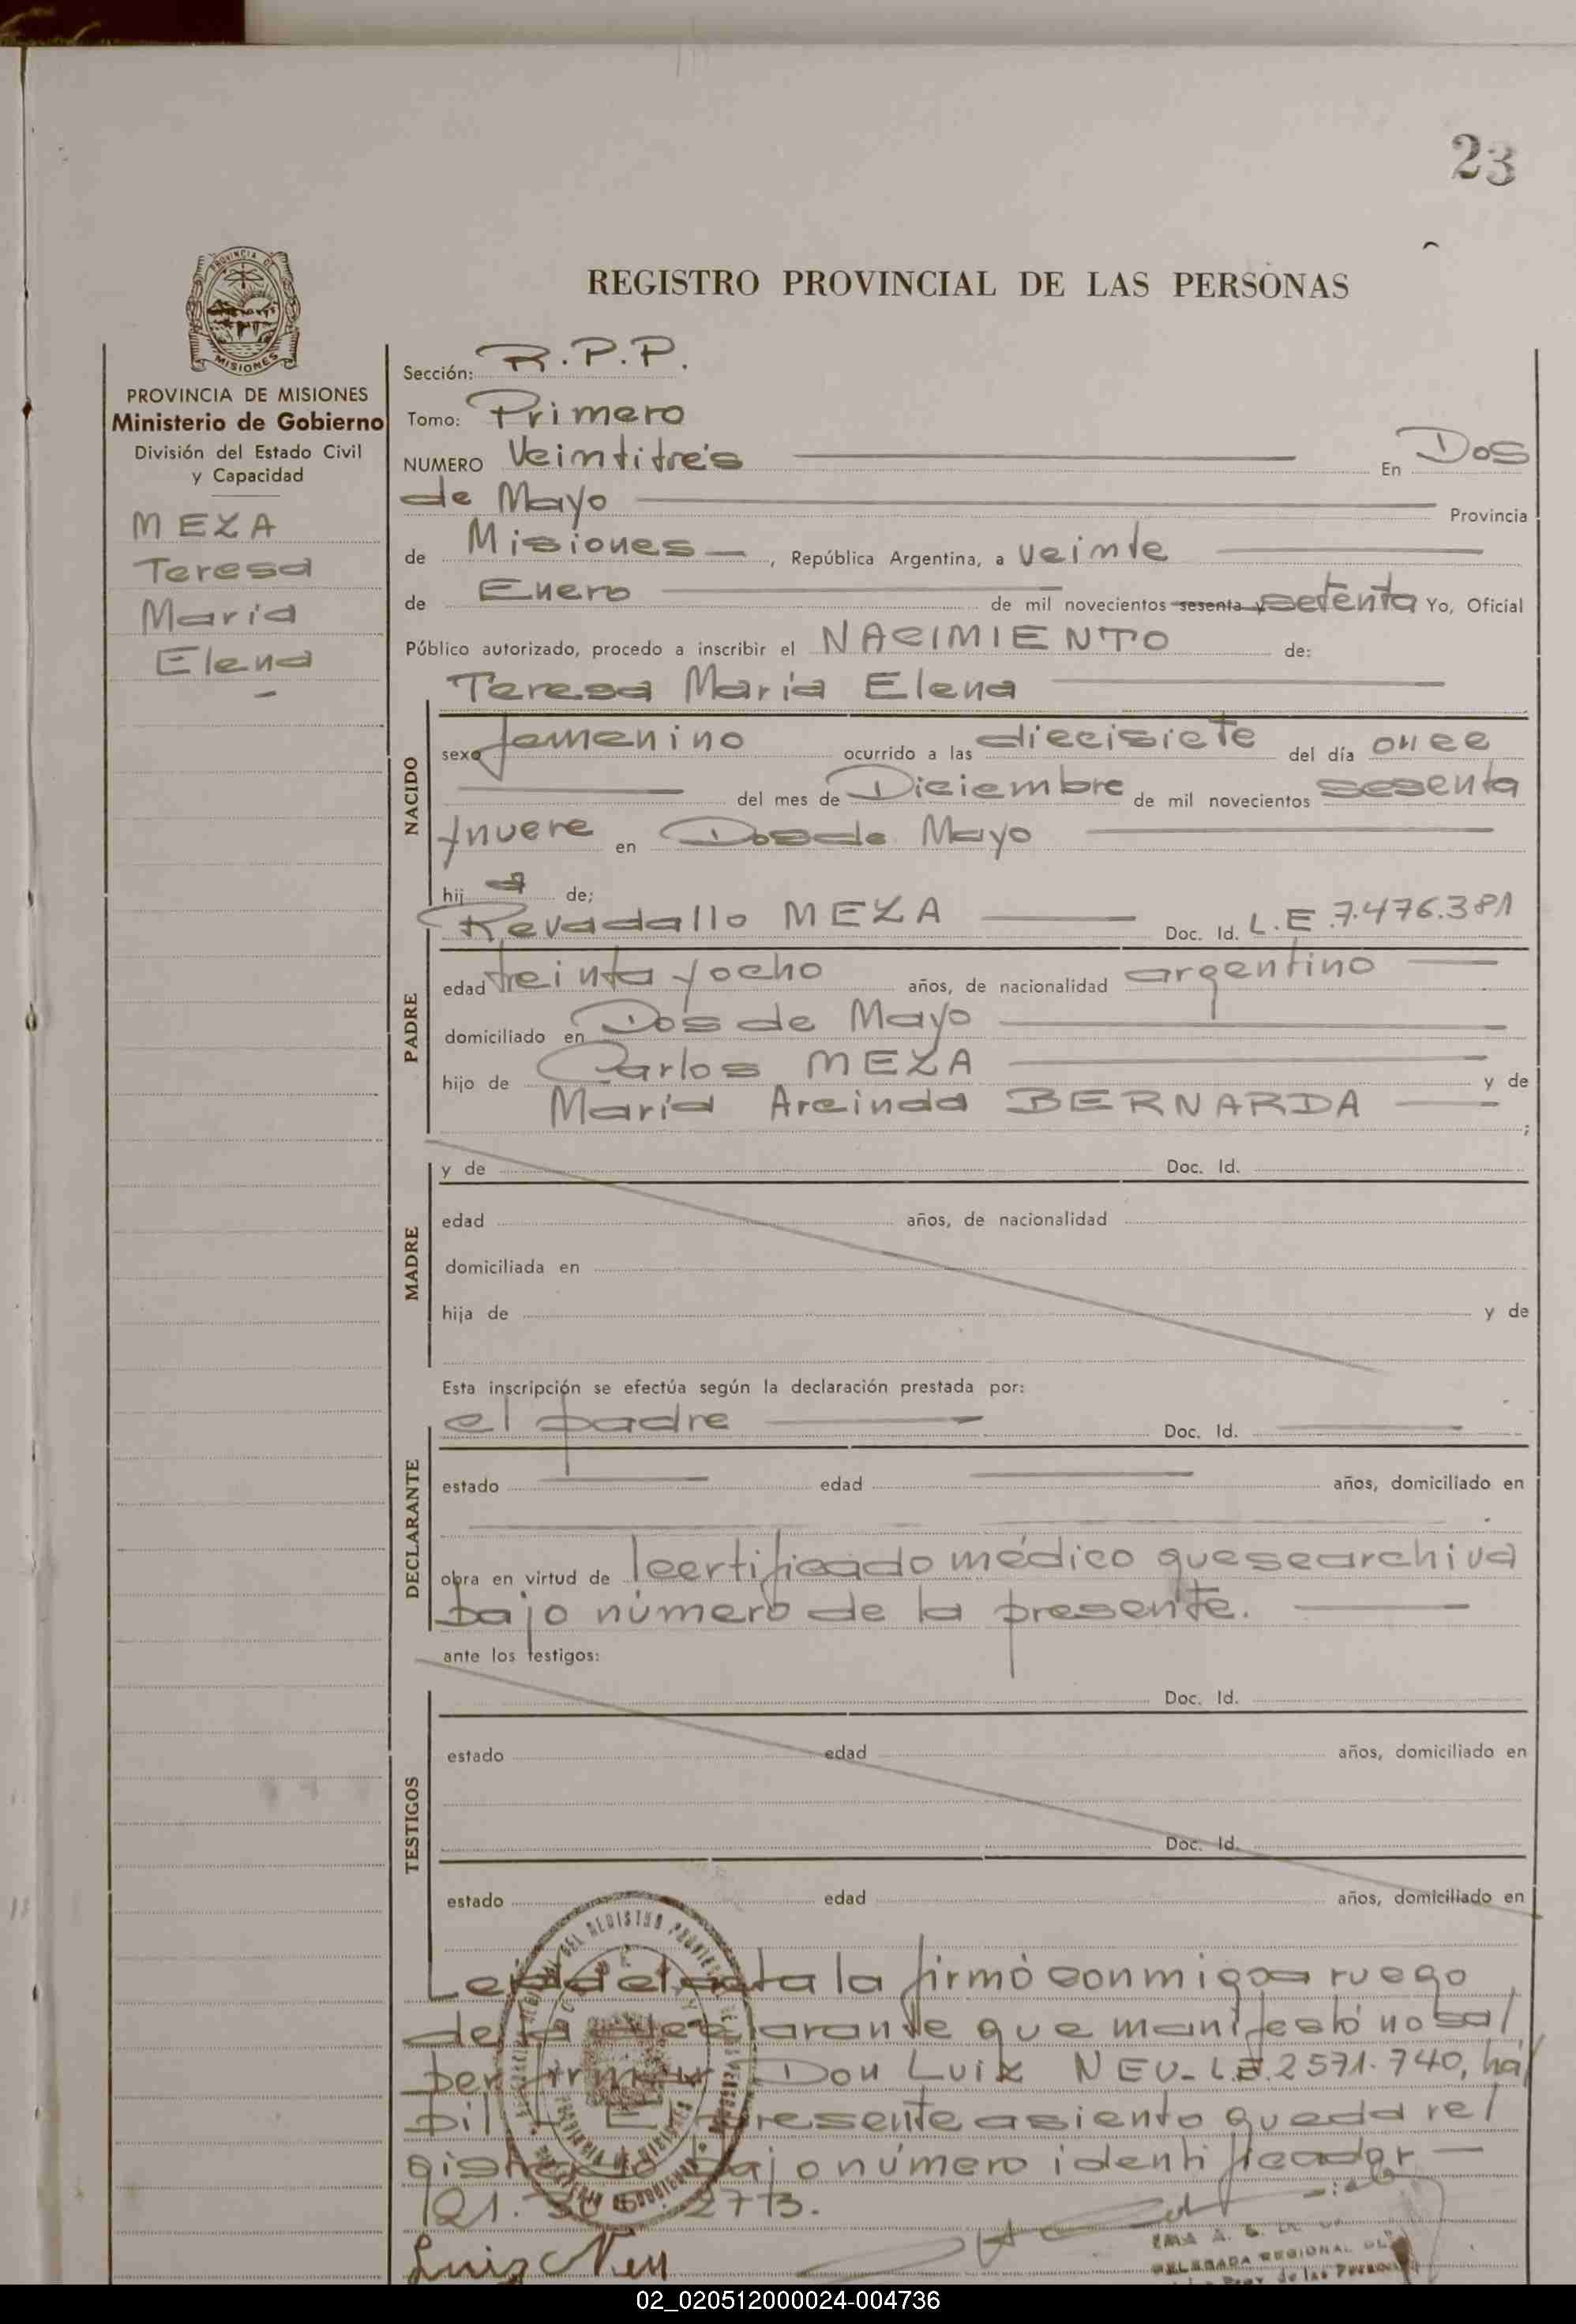 23
REGISTRO PROVINCIAL DE LAS PERSONAS
PROVINCIA DE MISIONES
Ministerio de Gobierno
División del Estado Civil
y Capacidad
MEZA
Teresa
María
Elena
Sección: R.P.P.
Tomo: Primero
NUMERO Veintitrés En Dos
de Mayo Provincia
de Misiones, República Argentina, a veinte
de Enero de mil novecientos sesenta y setenta Yo, Oficial
Público autorizado, procedo a inscribir el NACIMIENTO de:
Teresa María Elena
NACIDO
sexo femenino ocurrido a las diecisiete del día once
del mes de Diciembre de mil novecientos sesenta
ynueve en Dos de Mayo
hij a de;
Revadallo MEZA Doc. Id. L.E 7.476.381
PADRE
edad treinta y ocho años, de nacionalidad argentino
domiciliado en Dos de Mayo
hijo de Carlos MEZA y de
María Arcinda BERNARDA ;
MADRE
y de Doc. Id.
edad años, de nacionalidad
domiciliada en
hija de y de
Esta inscripción se efectúa según la declaración prestada por:
el padre Doc. Id.
DECLARANTE
estado edad años, domiciliado en
obra en virtud de certificado médico que se archiva
bajo número de la presente.
ante los testigos:
Doc. Id.
TESTIGOS
estado edad años, domiciliado en
Doc. Id.
estado edad años, domiciliado en
Leída el acta la firmó conmigo a ruego
declarante que manifestó no sa/
ber firmar Don Luiz NEU- L.E.2571.740, há/
bil.- El presente asiento queda re/
gistrado bajo número identificador
121. 2773.
Luiz Neu
DELEGADA REGIONAL DEL
Prov. de las Personas
02_020512000024-004736